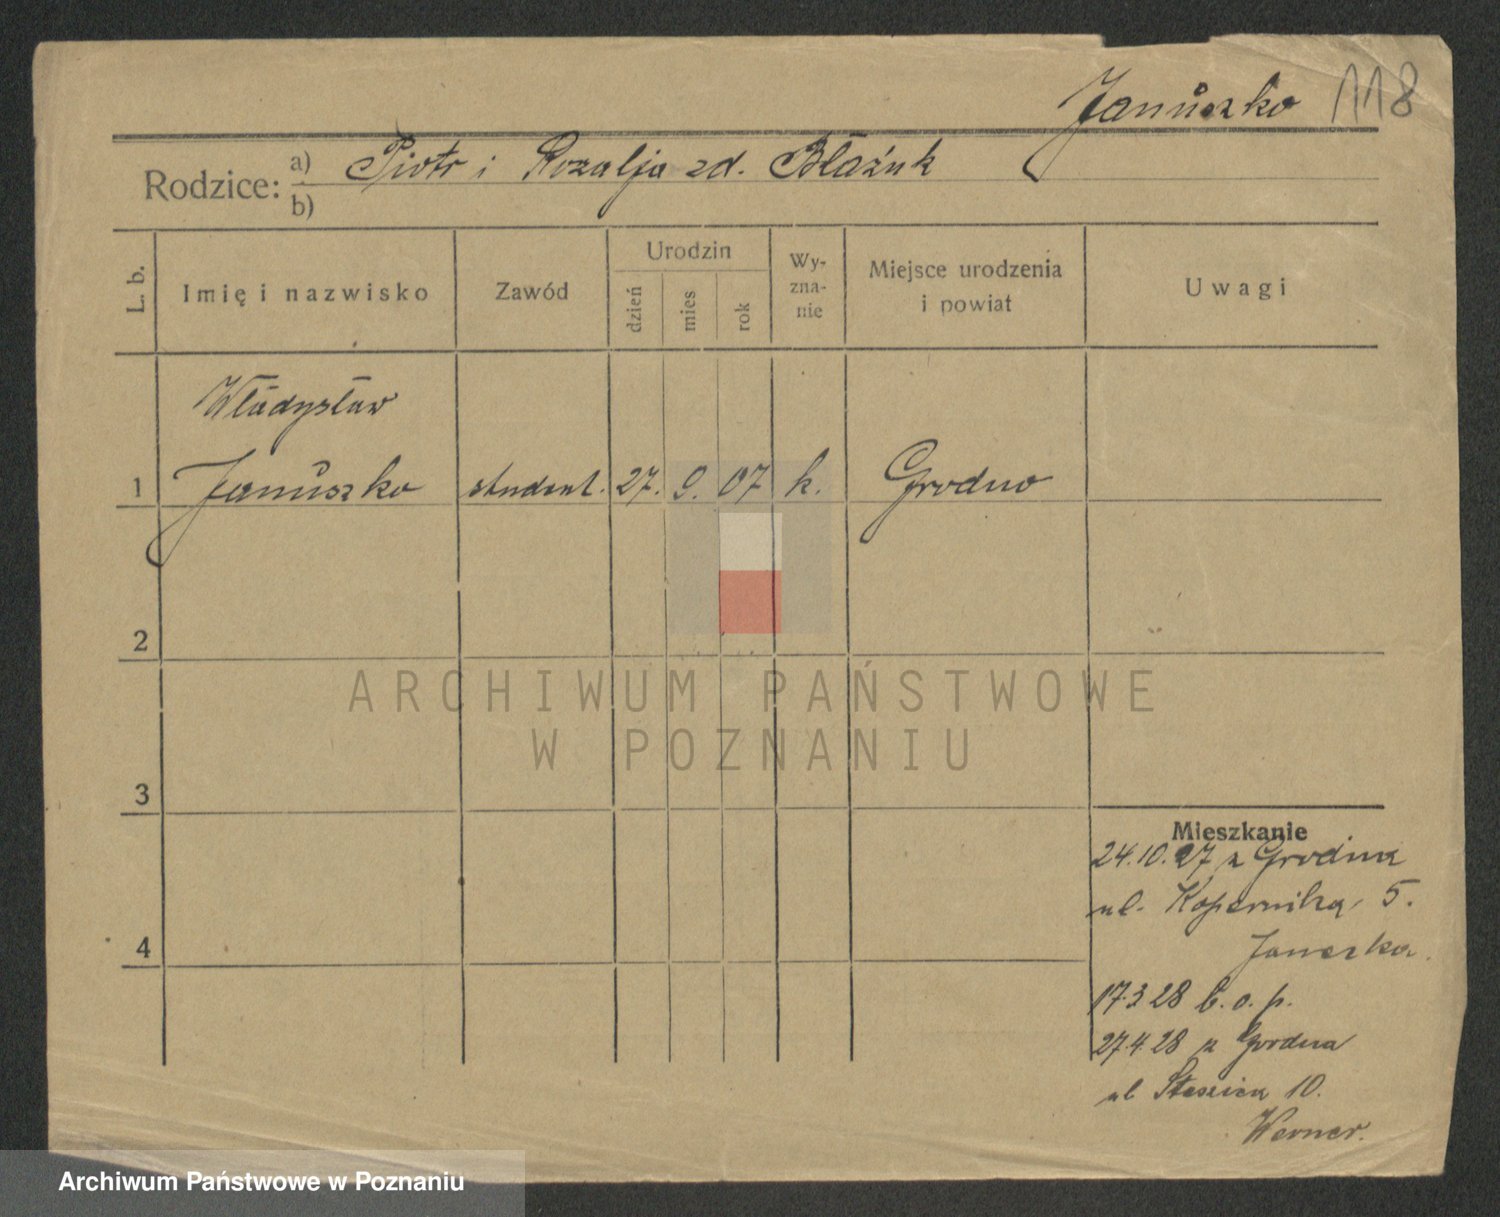 Januszko 118
Rodzice: a) Piotr i Rozalja zd. Błaźuk
b)
L. b.
Imię i nazwisko
Zawód
Urodzin
dzień
mies
rok
Wy-
zna-
nie
Miejsce urodzenia
i powiat
Uwagi
Władysław
1 Januszko student. 27. 9. 07 k. Grodno
2
3
4
Mieszkanie
24.10.27 z Grodna
ul. Kopernika 5.
17.3 28 b. o. p.
27.4.28 z Grodna
ul Staszica 10.
Werner.
ARCHIWUM PAŃSTWOWE
W POZNANIU
Archiwum Państwowe w Poznaniu